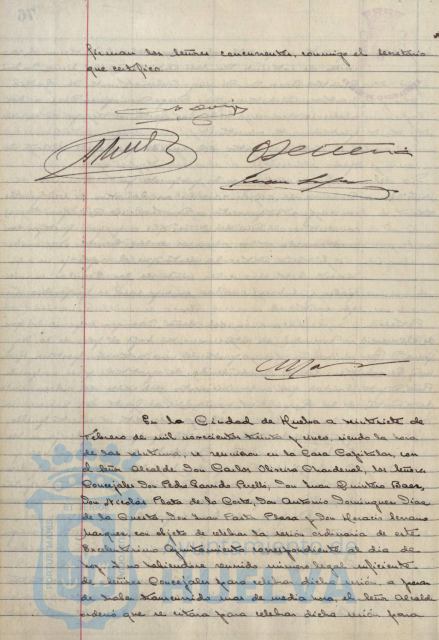 firman los señores concurrentes, conmigo el Secretario
que certifico.
En la Ciudad de Huelva a veintisiete de
Febrero de mil novecientos treinta y cinco, siendo la hora
de las veintiuna, se reunieron en la Casa Capitular, con
el Señor Alcalde Don Carlos Oliveira Chardenal, los Señores
Concejales Don Pedro Garrido Perelló, Don Juan Quintero Baez,
Don Nicolás Plata de la Corte, Don Antonio Domínguez Díaz
de la Cuesta, Don Juan Plaza y Don Horacio
Marquez con objeto de celebrar la sesión ordinaria de este
Excelentísimo Ayuntamiento correspondiente al día de
hoy. Y no habiéndose reunido número legal suficiente
de Señores Concejales para celebrar dicha sesión a pesar
de haber transcurrido mas de media hora el Señor Alcalde
ordenó que se citara para celebrar dicha sesión para